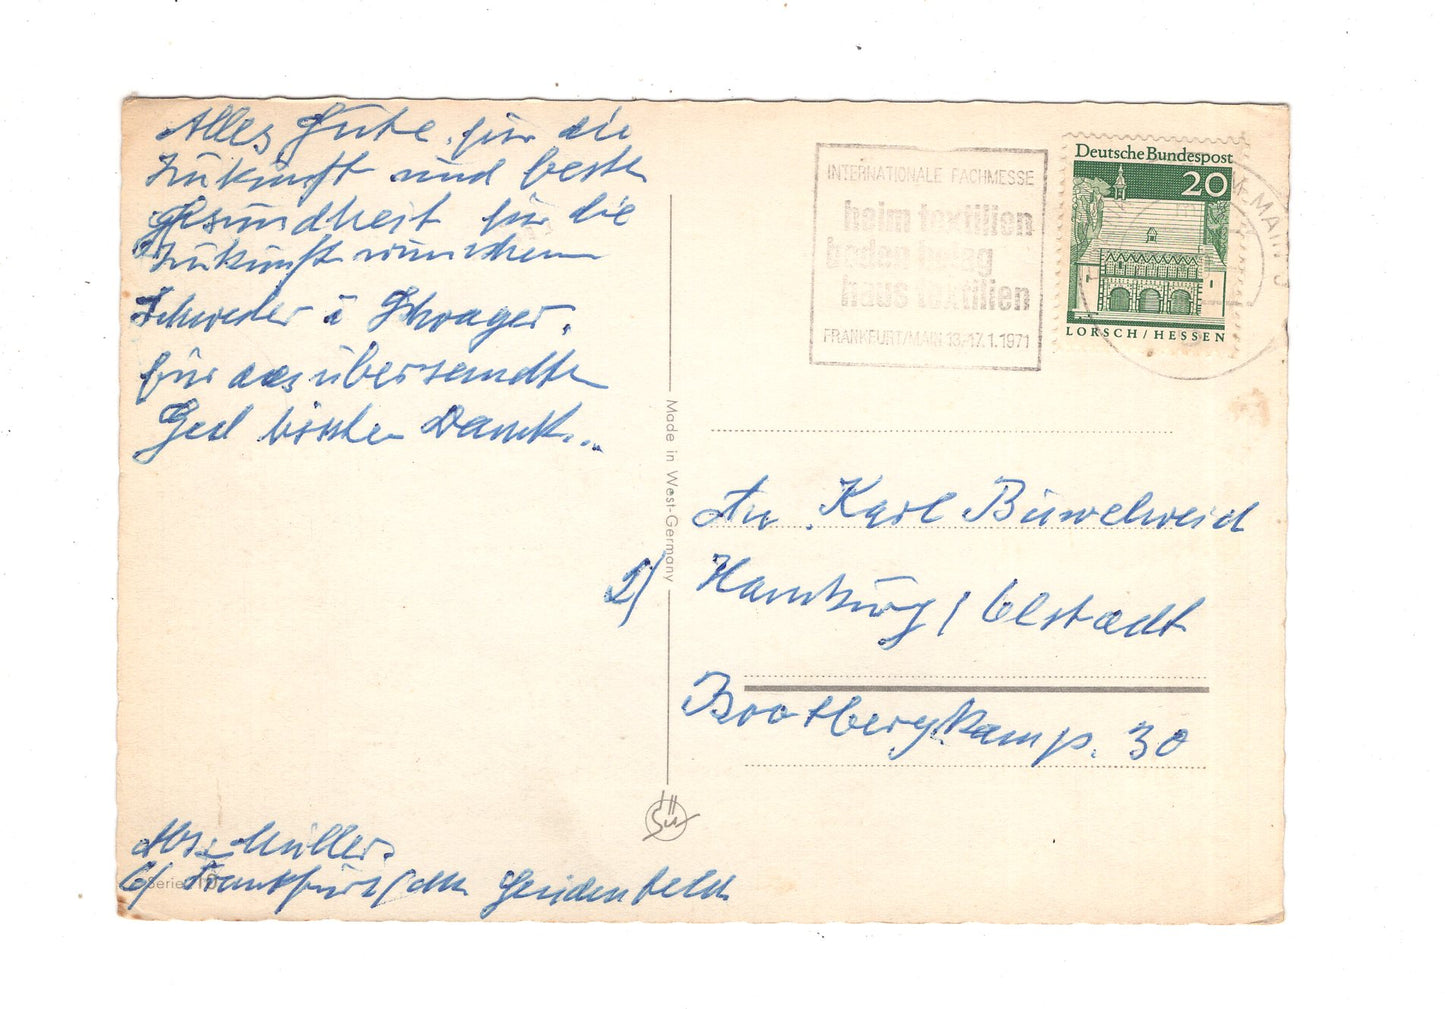 Alles Gute für die
Zukunft und beste
Gesundheit für die
Zukunft wünschen
Schwester u Schwager.
für das übersandte
Geld bisschen Dank...
Abs. Müller.
6/ Frankfurt/Mn
Serie 10
Made in West-Germany
INTERNATIONALE FACHMESSE
heim textilien
boden belag
haus textilien
FRANKFURT/MAIN 13.-17.1.1971
Deutsche Bundespost
20
LORSCH/HESSEN
An Karl
2) Hamburg/
30